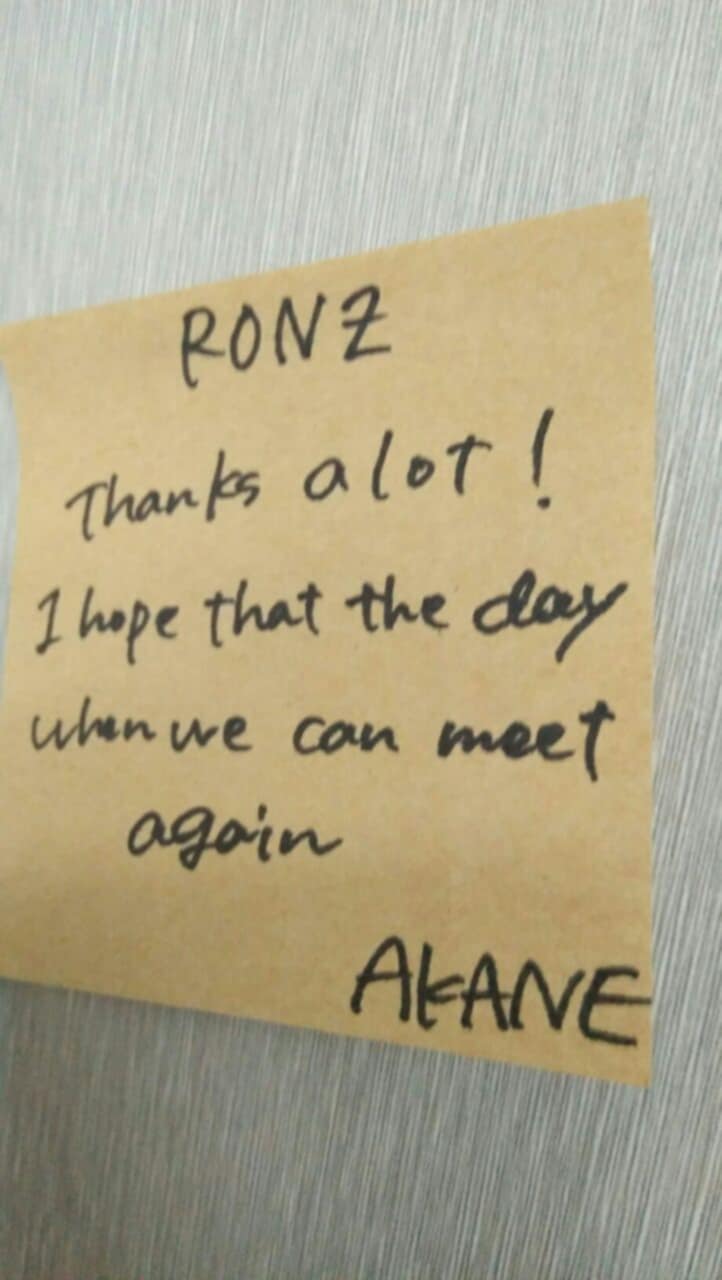 RONZ
Thanks a lot!
I hope that the day
when we can meet
again
AKANE